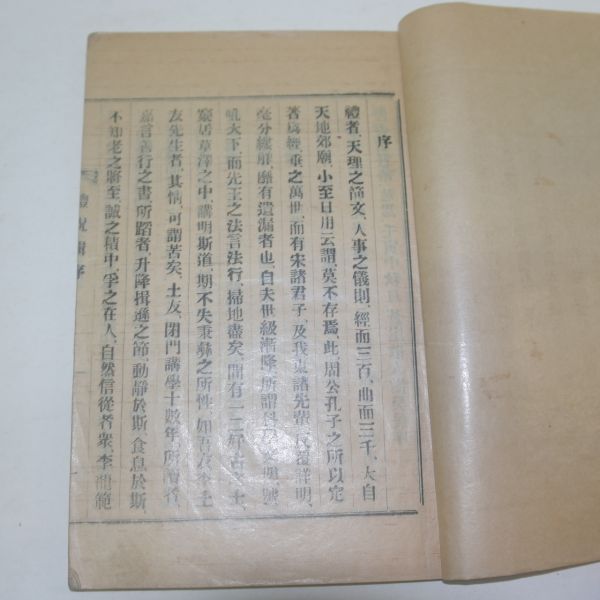 序
禮者、天理之節文、人事之儀則、經而三百、曲而三千、大自
天地郊廟、小至日用云謂、莫不存焉、此、周公孔子之所以定
著爲經、垂之萬世、而有宋諸君子、及我東諸先輩、反覆詳明、
毫分縷解、靡有遺漏者也、自夫世級漸降、所謂科學文明、號
吼天下、而先王之法言法行、掃地盡矣、間有一二好古之士、
窮居草澤之中、講明斯道、期不失秉彝之所性、如吾友李士
友先生者、其情、可謂苦矣、士友、閉門講學十數年、所讀者、
嘉言善行之書、所蹈者、升降揖遜之節、動靜於斯、食息於斯、
不知老之將至、誠之積中、孚之在人、自然信從者衆、李龍範
禮說輯序